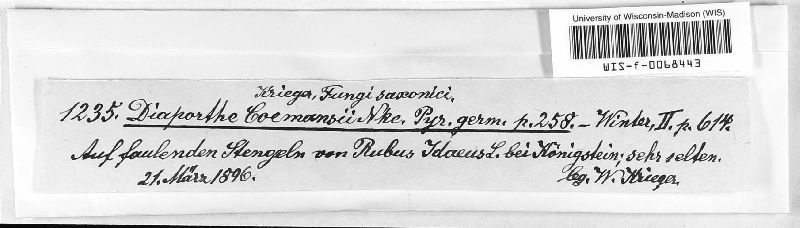 University of Wisconsin-Madison (WIS)
WIS-f-0068443
Krieger, Fungi saxonici.
1235. Diaporthe Coemansii Nke. Pyr. germ. p. 258. – Winter, II. p. 614.
Auf faulenden Stengeln von Rubus Idaeus L. bei Königstein; sehr selten.
21. März 1896. lg. W. Krieger.